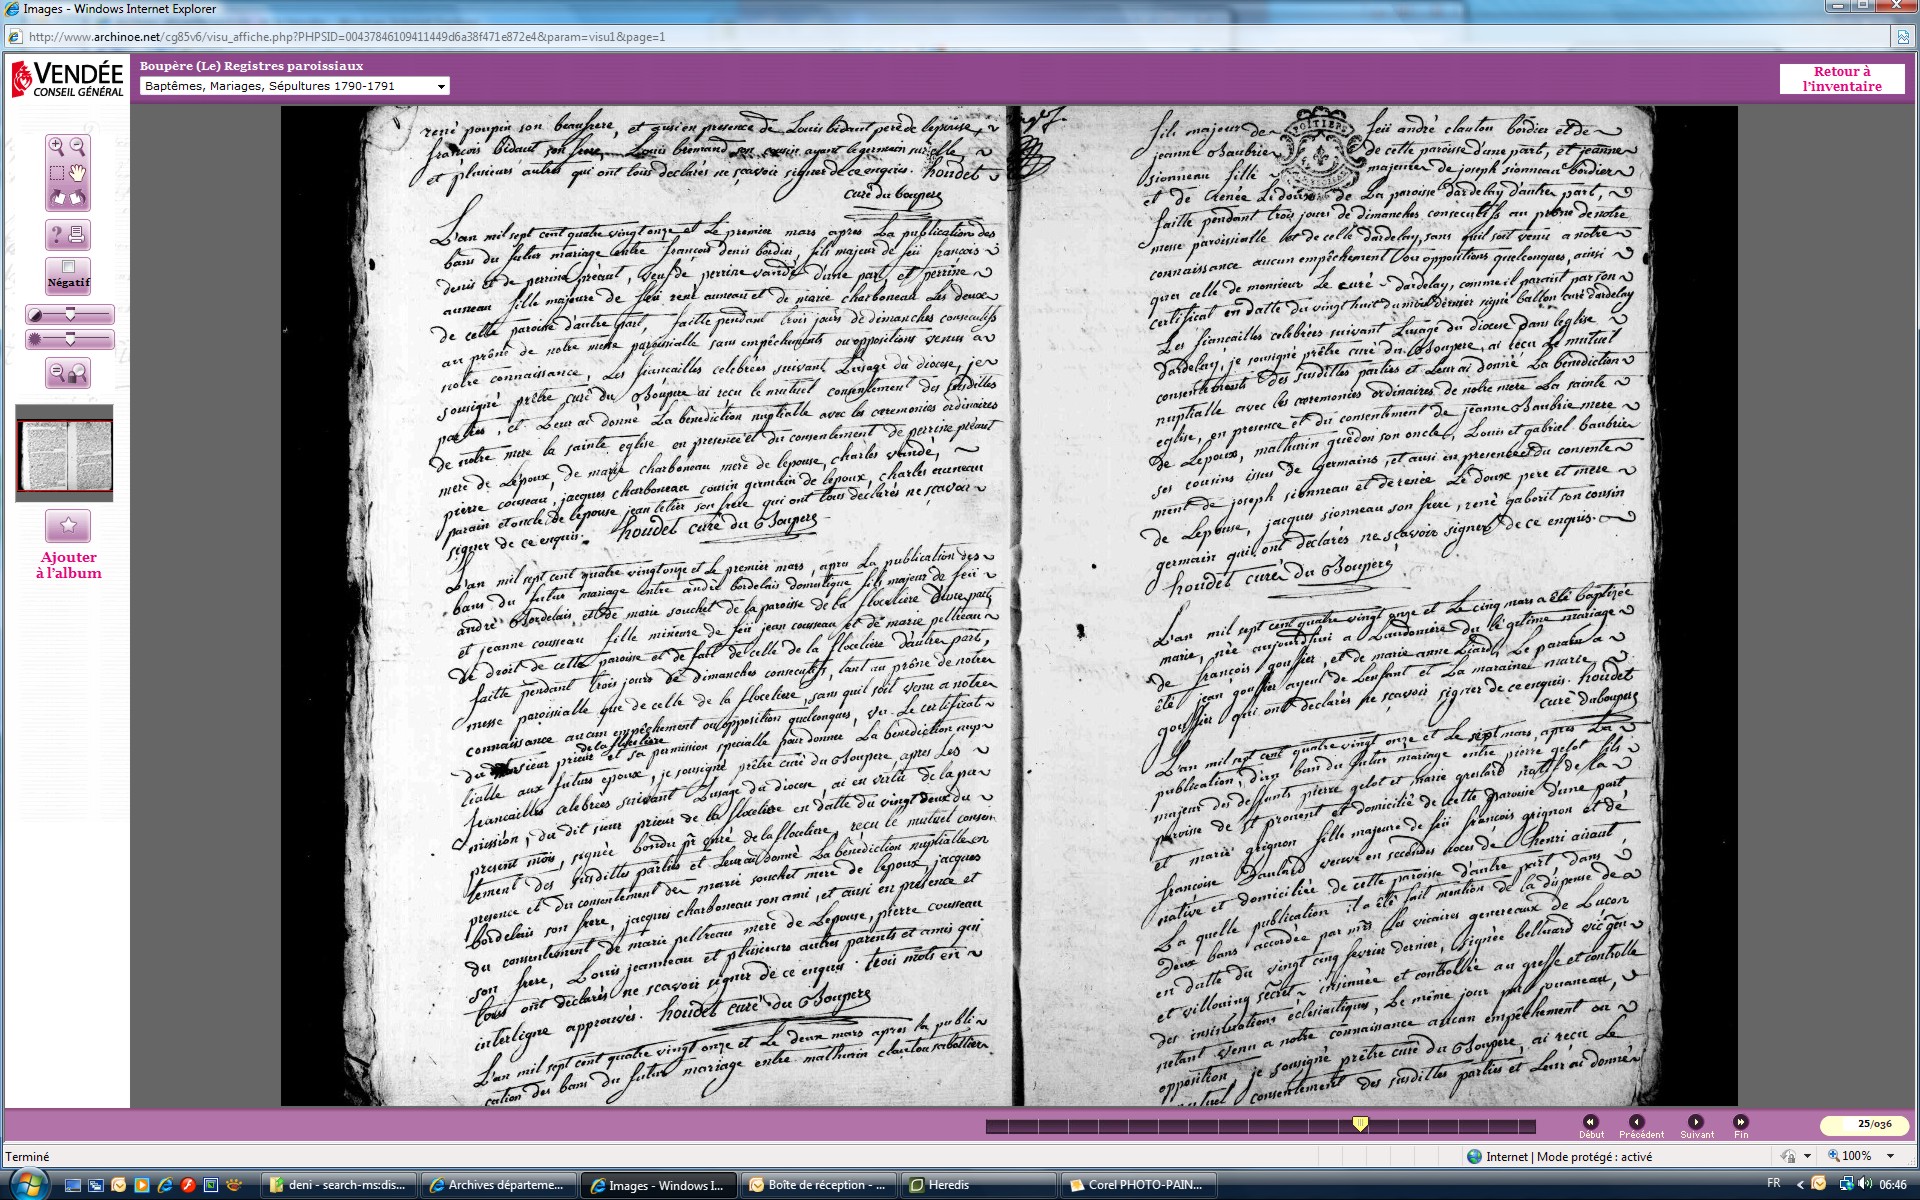 Images - Windows Internet Explorer
http://www.archinoe.net/cg85v6/visu_affiche.php?PHPSID=00437846109411449d6a38f471e872e4&param=visu1&page=1
VENDÉE
CONSEIL GÉNÉRAL
Boupère (Le) Registres paroissiaux
Baptêmes, Mariages, Sépultures 1790-1791
Retour à
l'inventaire
Négatif
Ajouter
à l'album
rené poupin son beaufrere, et aussi en presence de Louis bidaut pere de lepouse,
françois bidaut son frere, Louis bremand son cousin ayant le germain sur elle
et plusieurs autres qui ont tous declarés ne sçavoir signer de ce enquis. houdet
curé du boupere
L'an mil sept cent quatre vingt onze et Le premier mars apres La publication des
bans du futur mariage entre françois denis bordier, fils majeur de feü francois
denis et de perrine préaut, veuf de perrine vandé d'une part, et perrine
auneau fille majeure de feü rené auneau et de marie charboneau Les deux
de cette paroisse d'autre part, faitte pendant trois jours de dimanches consecutifs
au prône de notre messe paroissialle sans empêchements ou oppositions venus a
notre connaissance, Les fiancailles celebrées suivant Lusage du diocese, je
sousigné prêtre curé du Boupere ai recu le mutuel consentement des susdittes
parties, et Leur ai donné La bénédiction nuptialle avec les ceremonies ordinaires
de notre mere la sainte eglise en presence et du consentement de perrine préaut
mere de Lépoux, de marie charboneau mere de lepouse, charles vandé,
pierre cousseau, jacques charboneau cousin germain de lépoux, charles auneau
parain et oncle de lepouse jean letier son frere qui ont tous declarés ne scavoir
signer de ce enquis. houdet curé du Boupere
L'an mil sept cent quatre vingt onze et Le premier mars, apres La publication des
bans du futur mariage entre andré bordelais domestique fils majeur de feü
andré Bordelais et de marie souchet de la paroisse de la floceliere d'une part,
et jeanne cousseau fille mineure de feü jean cousseau et de marie pelleau
de droit de cette paroisse et de fait de celle de la floceliere d'autre part,
faitte pendant trois jours de dimanches consecutifs, tant au prône de notre
messe paroissialle que de celle de la floceliere, sans quil soit venu a notre
connaissance aucun empêchement ou opposition quelconques, vu Le certificat
de la floceliere
du sieur prieur et sa permission specialle pour donner La bénédiction nup
tialle aux futurs époux, je sousigné prêtre curé du Boupere apres Les
fiancailles celebrées suivant Lusage du diocese, ai en vertu de la per
mission, du dit sieur prieur de la floceliere en datte du vingt deux du
present mois, signée bondu pr curé de la floceliere, recu le mutuel consen
tement des susdittes parties et Leur ai donné La bénédiction nuptialle en
presence et du consentement de marie souchet mere de lepoux, jacques
bordelais son frere, jacques charboneau son ami, et aussi en presence et
du consentement de marie pelleau mere de Lepouse, pierre cousseau
son frere, Louis jeanneau et plusieurs autres parents et amis qui
tous ont déclarés ne scavoir signer de ce enquis. trois mots en
interligne approuvés. houdet curé du Boupere
L'an mil sept cent quatre vingt onze et Le deux mars apres la publi
cation des bans du futur mariage entre mathurin clauton sabottier
POITIERS
fils majeur de feü andré clauton bordier et de
jeanne Baubrie de cette paroisse d'une part, et jeanne
sionneau fille majeure de joseph sionneau bordier
et de renée Ledoux de La paroisse dardelay d'autre part,
faitte pendant trois jours de dimanches consecutifs au prône de notre
messe paroissialle et de celle dardelay, sans quil soit venu a notre
connaissance aucun empêchement ou oppositions quelconques, ainsi
qua celle de monsieur Le curé dardelay, comme il parait par son
certificat en datte du vingt huit du mois dernier signé ballon curé dardelay
Les fiancailles celebrées suivant Lusage du diocese dans leglise
dardelay, je sousigné prêtre curé du Boupere, ai recu Le mutuel
consentement des susdittes parties et Leur ai donné La bénédiction
nuptialle avec les ceremonies ordinaires de notre mere La sainte
eglise, en presence et du consentement de jeanne Baubrie mere
de Lepoux, mathurin guedon son oncle, Louis et gabriel baubrier
ses cousins issus de germains, et aussi en presence et du consente
ment de joseph sionneau et de renée Le doux pere et mere
de Lepouse, jacques sionneau son frere, rené gaborit son cousin
germain qui ont déclarés ne scavoir signer de ce enquis.
houdet curé du Boupere
L'an mil sept cent quatre vingt onze et Le cinq mars a été baptizée
marie, née aujourdhui a Laudoniere du légitime mariage
de françois gouffier, et de marie anne Liard, Le parain a
été jean gouffier ayeul de Lenfant et La maraine marie
gouffier qui ont déclarés ne sçavoir signer de ce enquis. houdet
curé du boupere
L'an mil sept cent quatre vingt onze et Le sept mars, apres La
publication d'un ban du futur mariage entre pierre gelot fils
majeur des deffunts pierre gelot et marie greslard natif de la
paroisse de st prouent et domicilié de cette paroisse d'une part
et marie grignon fille majeure de feü françois grignon et de
françoise Baulard veuve en secondes noces de henri airaut
native et domiciliée de cette paroisse d'autre part dans
La quelle publication il a été fait mention de la dispense de
deux bans accordée par mrs Les vicaires genereaux de Luçon
en datte du vingt cinq fevrier dernier, signée
et secret. insinuée et controllée au greffe et controlle
des insinuations eclesiastiques, Le même jour par
netant venu a notre connaissance aucun empêchement ou
opposition, je sousigné prêtre curé du Boupere, ai recu Le
mutuel consentement des susdittes parties et Leur ai donné
Début
Précédent
Suivant
Fin
25/036
Terminé
Internet | Mode protégé : activé
100%
deni - search-ms:dis...
Archives départeme...
Images - Windows I...
Boîte de réception - ...
Heredis
Corel PHOTO-PAIN...
FR
06:46